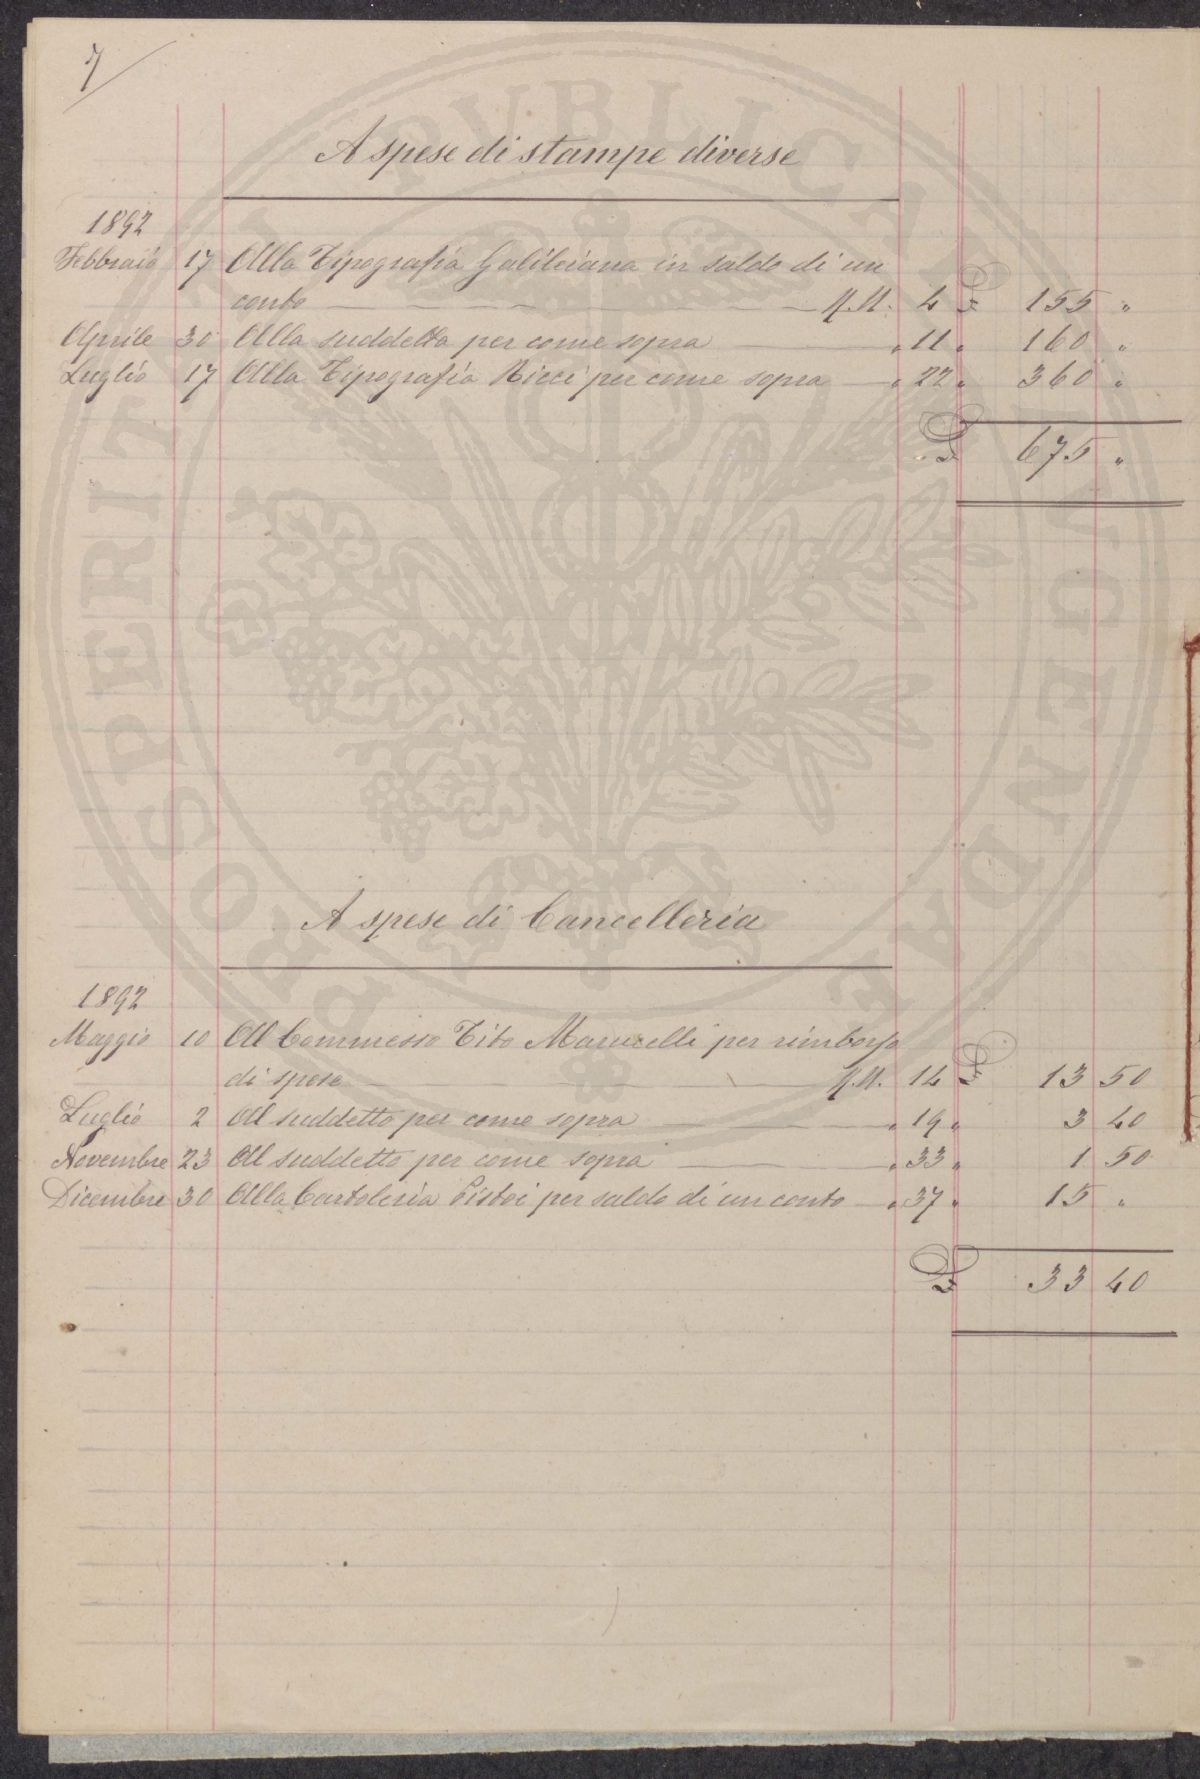 7
A spese di stampe diverse
1892
Febbraio 17 Alla Tipografia Galileiana in saldo di un
conto M.M. 4 £ 155 "
Aprile 30 Alla suddetta per come sopra " 11 " 160 "
Luglio 17 Alla Tipografia Ricci per come sopra " 22 " 360 "
£ 675 "
A spese di Cancelleria
1892
Maggio 10 Al Commesso Tito Marucelli per rimborso
di spese M.M. 14 £ 13 50
Luglio 2 Al suddetto per come sopra " 19 " 3 40
Novembre 23 Al suddetto per come sopra " 33 " 1 50
Dicembre 30 Alla Cartoleria Pistoi per saldo di un conto " 37 " 15 "
£ 33 40
PROSPERITATI PVBLICAE AVGENDAE